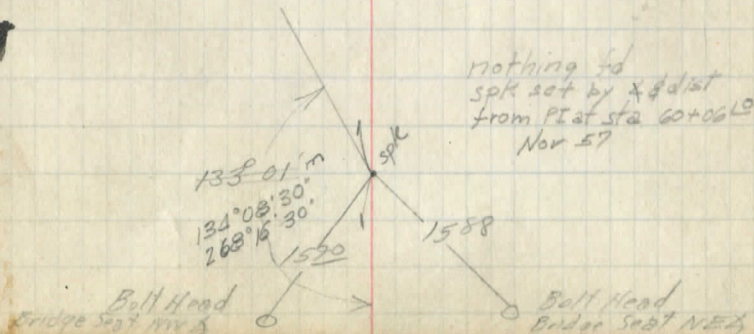 nothing fd
spk set by ∡ & dist
from PI at sta 60+06
Nov 57
spk
133° 01' m
134° 08' 30"
268° 16' 30"
1570
1588
Bolt Head
Bridge Seat
Bolt Head
Bridge Seat